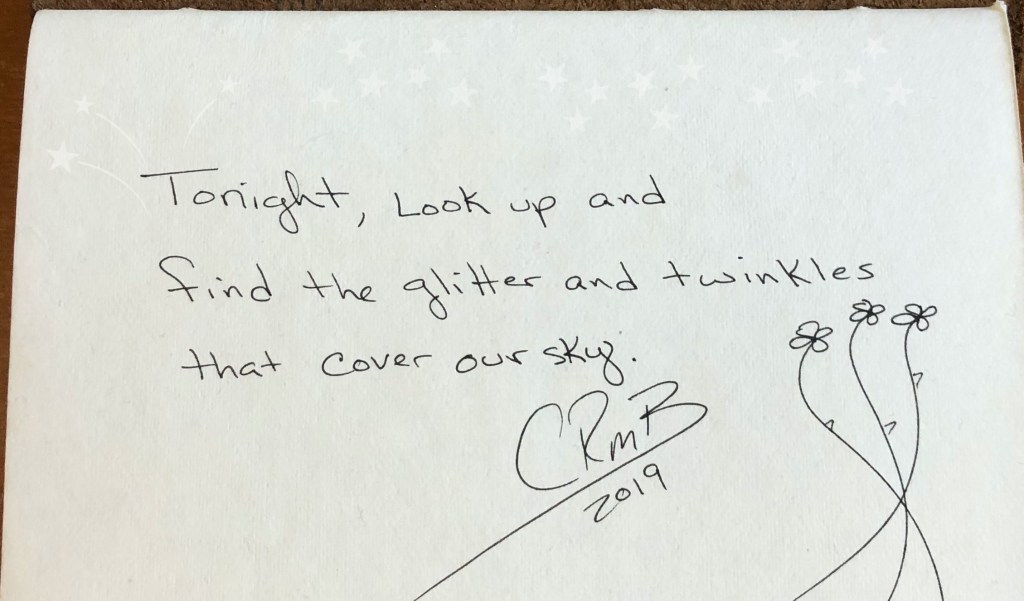 Tonight, Look up and
find the glitter and twinkles
that cover our sky.
CRmB
2019